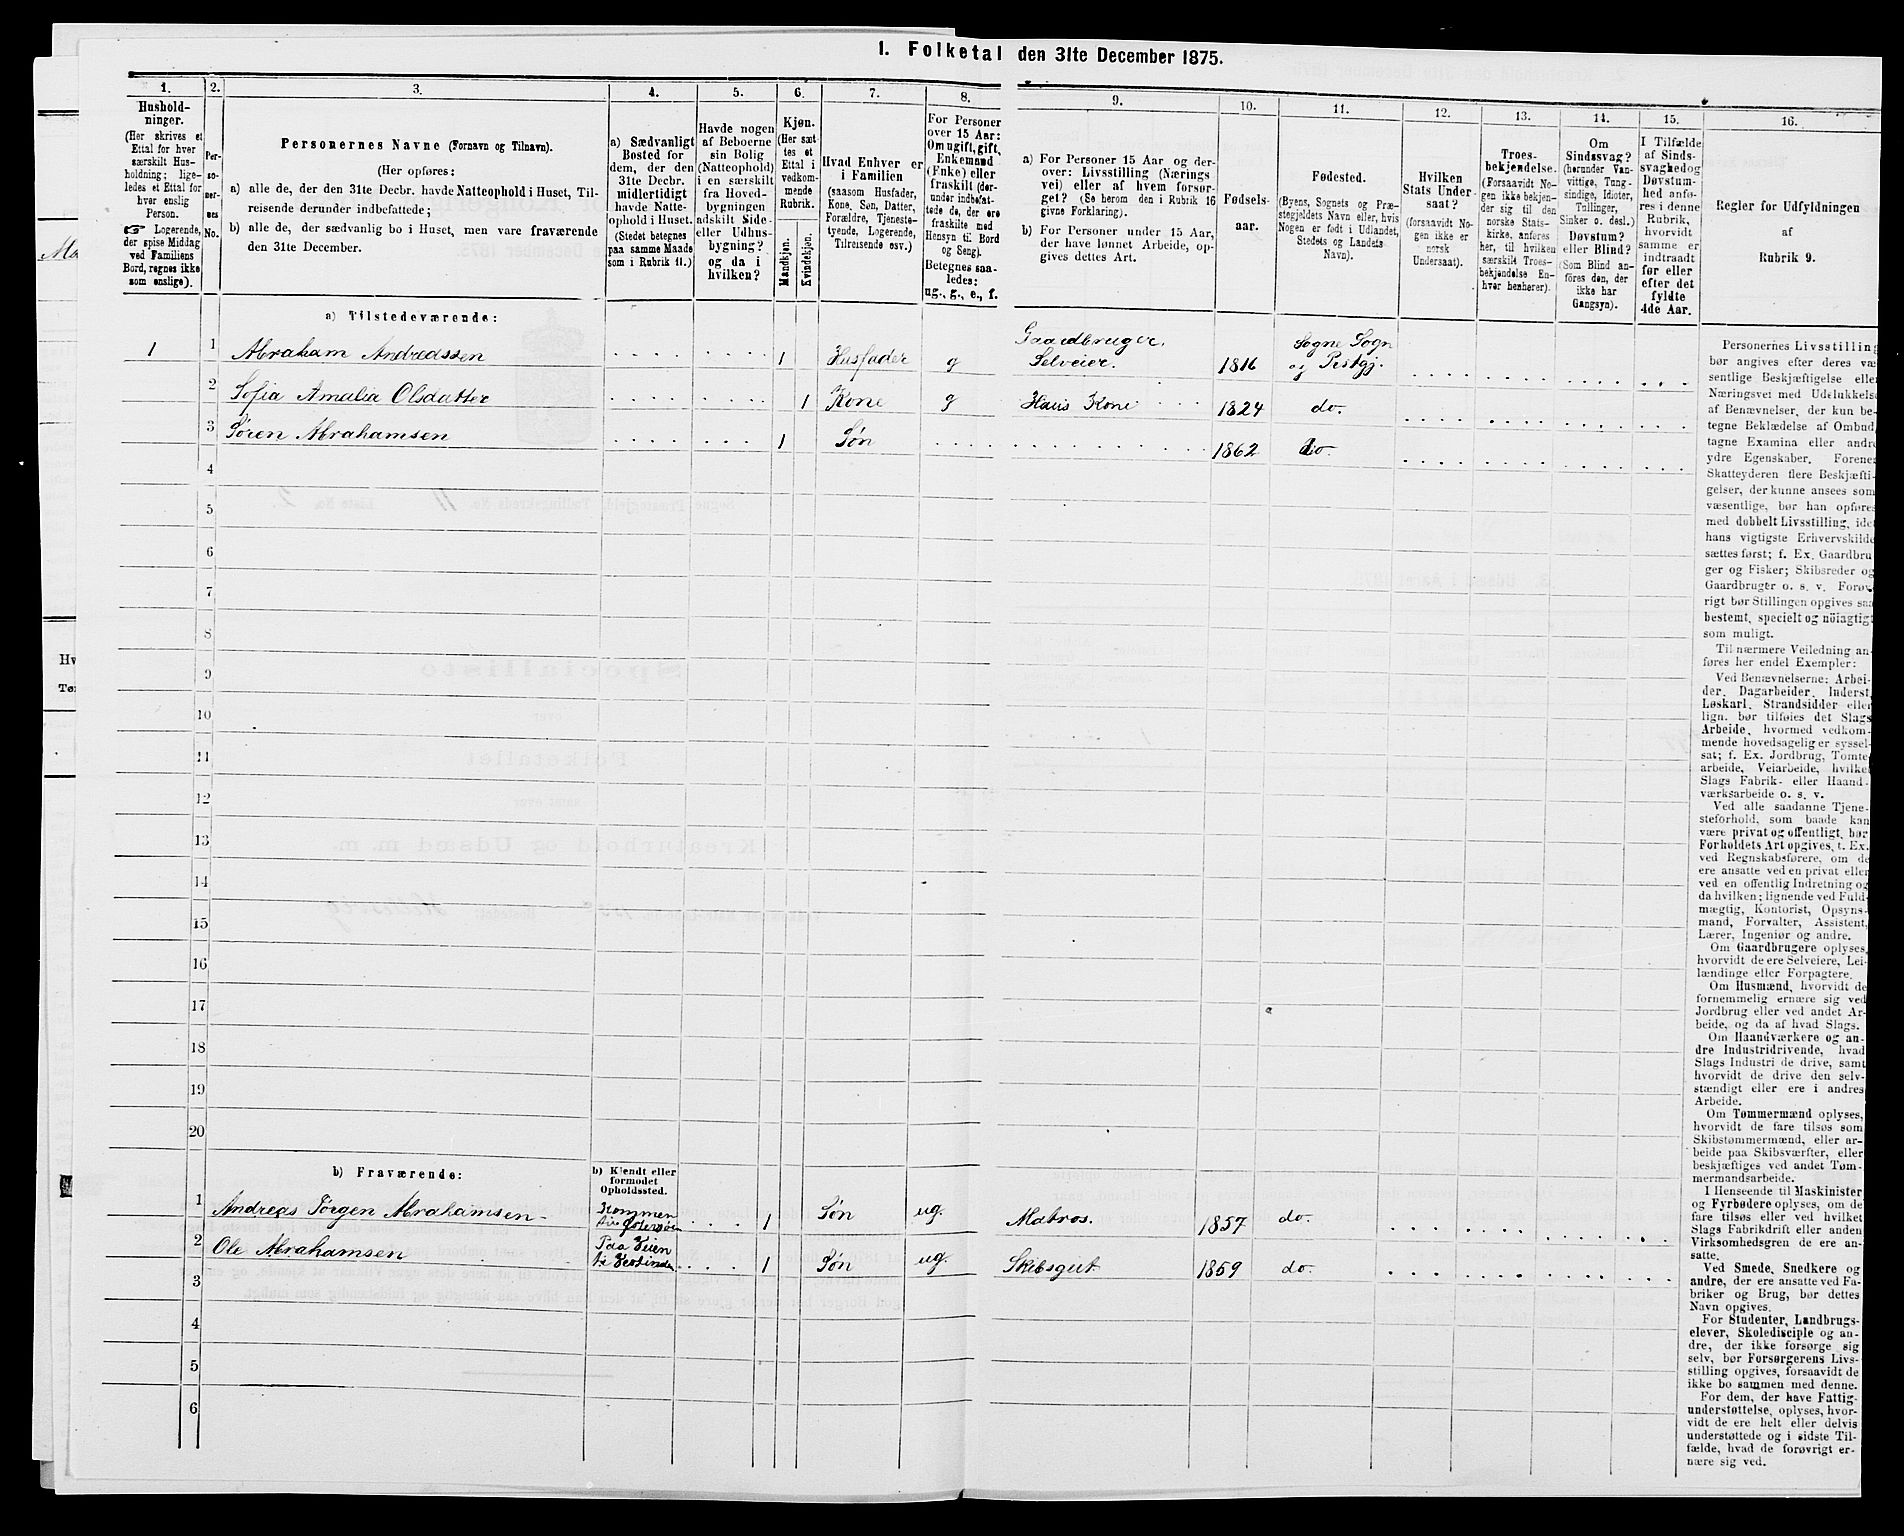 1. Folketal den 31te December 1875.
1.
Hushold-
ninger.
(Her skrives et
Ettal for hver
særskilt Hus-
holdning; lige-
ledes et Ettal for
hver enslig
Person.
☞ Logerende,
der spise Middag
ved Familiens
Bord, regnes ikke
som enslige).
2.
Per-
so-
ner-
nes
No.
3.
Personernes Navne (Fornavn og Tilnavn).
(Her opføres:
a) alle de, der den 31te Decbr. havde Natteophold i Huset, Til-
reisende derunder indbefattede;
b) alle de, der sædvanlig bo i Huset, men vare fraværende
den 31te December.
4.
a) Sædvanligt
Bosted for
dem, der den
31te Decbr.
midlertidigt
havde Natte-
ophold i Huset.
(Stedet betegnes
paa samme Maade
som i Rubrik 11.)
5.
Havde nogen
af Beboerne
sin Bolig
(Natteophold)
i en særskilt
fra Hoved-
bygningen
adskilt Side-
eller Udhus-
bygning?
og da i
hvilken?
6.
Kjøn.
(Her sæt-
tes et
Ettal i
vedkom-
mende
Rubrik.
Mandkjøn.
Kvindekjøn.
7.
Hvad Enhver er
i Familien
(saasom Husfader,
Kone, Søn, Datter,
Forældre, Tjeneste-
tyende, Logerende,
Tilreisende osv.)
8.
For Personer
over 15 Aar:
Om ugift, gift,
Enkemand
(Enke) eller
fraskilt (der-
under indbefat-
tede de, der ere
fraskilte med
Hensyn til Bord
og Seng).
Betegnes saa-
ledes:
ug., g., e., f.
9.
a) For Personer 15 Aar og der-
over: Livsstilling (Nærings
vei) eller af hvem forsør-
get? (Se herom den i Rubrik 16
givne Forklaring).
b) For Personer under 15 Aar,
der have lønnet Arbeide, op-
gives dettes Art.
10.
Fødsels-
aar.
11.
Fødested.
(Byens, Sognets og Præ-
stegjeldets Navn eller, hvis
Nogen er født i Udlandet,
Stedets og Landets
Navn).
12.
Hvilken
Stats Under-
saat?
(forsaavidt No-
gen ikke er
norsk
Undersaat).
13.
Troes-
bekjendelse.
(Forsaavidt No-
gen ikke bekjen-
der sig til den
norske Stats-
kirke, anføres
her, til hvilken
særskilt Troes-
bekjendelse En-
hver henhører).
14.
Om
Sindssvag?
(herunder Van-
vittige, Tung-
sindige, Idioter,
Tullinger,
Sinker o. desl.)
Døvstum?
eller Blind?
(Som Blind an-
føres den, der
ikke har
Gangsyn).
15.
I Tilfælde
af Sinds-
svaghedog
Døvstum-
hed anfø-
res i denne
Rubrik,
hvorvidt
samme er
indtraadt
før eller
efter det
fyldte
4de Aar.
16.
Regler for Udfyldningen
af
Rubrik 9.
a) Tilstedeværende:
1 1 Abraham Andreassen 1 Husfader g Gaardbruger. Selveier. 1816 Sogne Sogn og Prstgj.
2 Sofia Amalia Olsdatter 1 Kone g Hans Kone 1824 do.
3 Søren Abrahamsen 1 Søn 1862 do.
4
5
6
7
8
9
10
11
12
13
14
15
16
17
18
19
20
b) Fraværende:
b) Kjendt eller
formodet
Opholdssted.
1 Andreas Jørgen Abrahamsen 1 Søn ug. Matros. 1857 do.
2 Ole Abrahamsen Paa Veien 1 Søn ug. Skibsgut. 1859 do.
3
4
5
6
Personernes Livsstilling
bør angives efter deres væ
sentlige Beskjæftigelse eller
Næringsvei med Udelukkelse
af Benævnelser, der kun be-
tegne Beklædelse af Ombud,
tagne Examina eller andre
ydre Egenskaber. Forener
Skatteyderen flere Beskjæfti-
gelser, der kunne ansees som
væsentlige, bør han opføres
med dobbelt Livsstilling, idet
hans vigtigste Erhvervskilde
sættes først; f. Ex. Gaardbru
ger og Fisker; Skibsreder og
Gaardbruger o. s. v. Forøv
rigt bør Stillingen opgives saa
bestemt, specielt og nöiagtigt
som muligt.
Til nærmere Veiledning an-
føres her endel Exempler:
Ved Benævnelserne: Arbei-
der, Dagarbeider, Inderst,
Løskarl, Strandsidder eller
lign. bør tilføies det Slags
Arbeide, hvormed vedkom-
mende hovedsagelig er syssel-
sat; f. Ex. Jordbrug, Tomte
arbeide, Veiarbeide, hvilket
Slags Fabrik- eller Haand-
værksarbeide o. s. v.
Ved alle saadanne Tjene-
steforhold, som baade kan
være privat og offentligt, bør
Forholdets Art opgives, t. Ex.
ved Regnskabsførere, om de
ere ansatte ved en privat eller
ved en offentlig Indretning og
da hvilken; lignende ved Fuld-
mægtig, Kontorist, Opsyns-
mand, Forvalter, Assistent,
Lærer, Ingeniør og andre.
Om Gaardbrugere oplyses,
hvorvidt de ere Selveiere, Lei-
lændinge eller Forpagtere.
Om Husmænd, hvorvidt de
fornemmelig ernære sig ved
Jordbrug eller ved andet Ar-
beide, og da af hvad Slags.
Om Haandværkere og an-
dre Industridrivende, hvad
Slags Industri de drive, samt
hvorvidt de drive den selv-
stændigt eller ere i andres
Arbeide.
Om Tømmermænd oplyses,
hvorvidt de fare tilsøs som
Skibstømmermænd, eller ar-
beide paa Skibsværfter, eller
beskjæftiges ved andet Tøm-
mermandsarbeide.
I Henseende til Maskinister
og Fyrbødere oplyses, om de
fare tilsøs eller ved hvilket
Slags Fabrikdrift eller anden
Virksomhedsgren de ere an-
satte.
Ved Smede, Snedkere og
andre, der ere ansatte ved Fa-
briker og Brug, bør dettes
Navn opgives.
For Studenter, Landbrugs-
elever, Skoledisciple og an-
dre, der ikke forsørge sig
selv, bør Forsørgerens Livs-
stilling opgives, forsaavidt de
ikke bo sammen med denne.
For dem, der have Fattig-
understøttelse, oplyses, hvor-
vidt de ere helt eller delvis
understøttede og i sidste Til-
fælde, hvad de forøvrigt er-
nære sig ved.